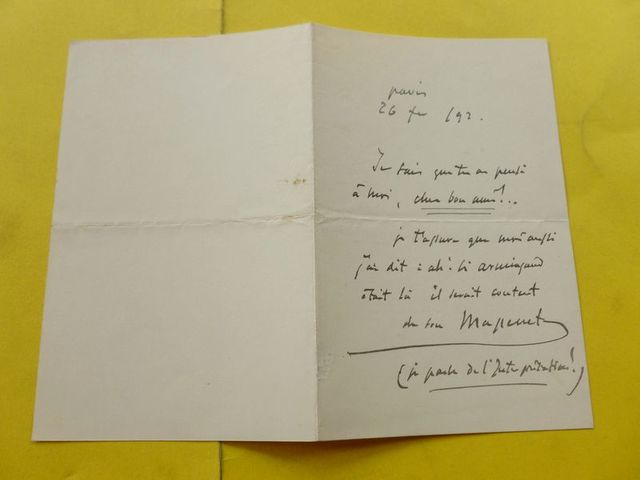 Paris
26 fev /92.
Je sais que tu as pensé
à moi, cher bon ami !...
je t'assure que moi aussi
j'ai dit : ah ! si armingaud
était là il serait content
de son Massenet
(je parle de l'Interprétation !)